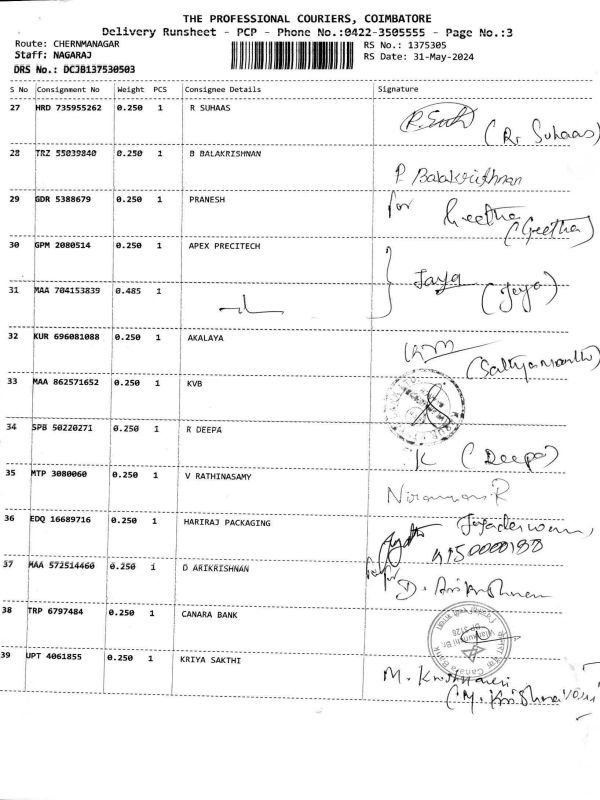 THE PROFESSIONAL COURIERS, COIMBATORE
Delivery Runsheet - PCP - Phone No.:0422-3505555 - Page No.:3
Route: CHERNMANAGAR
RS No.: 1375305
Staff: NAGARAJ
RS Date: 31-May-2024
DRS No.: DCJB137530503
S No Consignment No Weight PCS Consignee Details Signature
27 HRD 735955262 0.250 1 R SUHAAS
(R. Suhaas)
28 TRZ 55039840 0.250 1 B BALAKRISHNAN
P. Balakrishnan
29 GDR 5388679 0.250 1 PRANESH for Geetha
(Geetha)
30 GPM 2080514 0.250 1 APEX PRECITECH
Jaya (Jaya)
31 MAA 704153839 0.485 1
32 KUR 696081088 0.250 1 AKALAYA
33 MAA 862571652 0.250 1 KVB
34 SPB 50220271 0.250 1 R DEEPA
K (Deepa)
35 MTP 3080060 0.250 1 V RATHINASAMY
36 EDQ 16689716 0.250 1 HARIRAJ PACKAGING
37 MAA 572514460 0.250 1 D ARIKRISHNAN
for D. Arikrishnan
38 TRP 6797484 0.250 1 CANARA BANK
Canara Bank
39 UPT 4061855 0.250 1 KRIYA SAKTHI
M. Krishnaveni
(M. Krishnaveni)